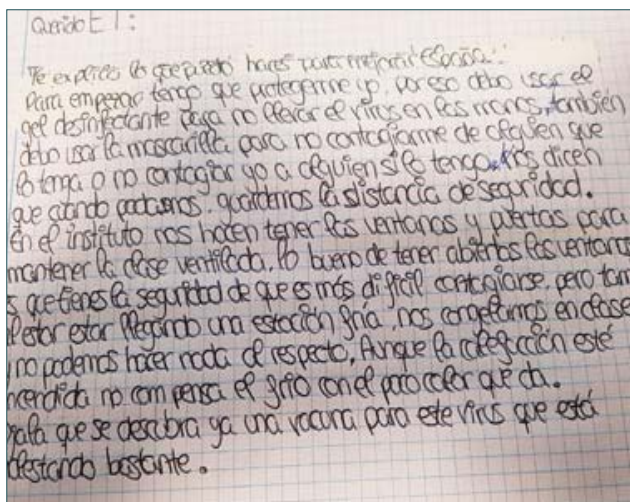 Querido E l :
Te explico lo que puedo hacer para mejorar España:
Para empezar tengo que protegerme yo, por eso debo usar el
gel desinfectante para no llevar el virus en las manos, también
debo usar la mascarilla para no contagiarme de alguien que
lo tenga o no contagiar yo a alguien si lo tengo. Nos dicen
que cuando podamos, guardemos la distancia de seguridad.
En el instituto nos hacen tener las ventanas y puertas para
mantener la clase ventilada, lo bueno de tener abiertas las ventanas
s que tienes la seguridad de que es más difícil contagiarse, pero tam
al estar estar llegando una estación fría, nos congelamos en clase
y no podemos hacer nada al respecto. Aunque la calefacción esté
ncendida no compensa el frío con el poco calor que da.
jala que se descubra ya una vacuna para este virus que está
afectando bastante.